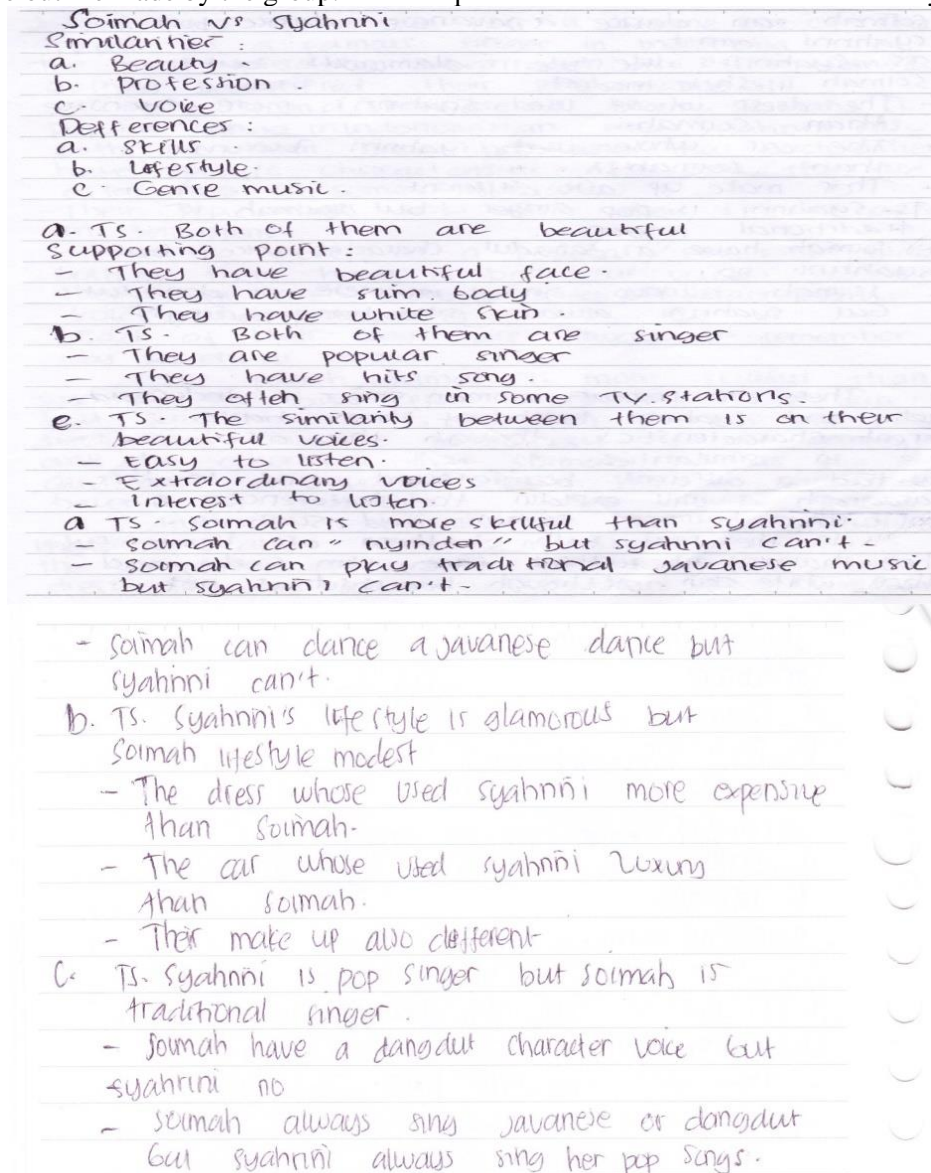 Soimah Vs Syahrini
Similarities :
a. Beauty
b. Profession.
c. Voice
Defferences :
a. Skills
b. Lifestyle.
c. Genre music.
a. TS Both of them are beautiful
Supporting point:
- They have beautiful face
- They have slim body
- They have white skin
b. TS. Both of them are singer
- They are popular singer
- They have hits song.
- They often sing in some TV. Stations
c. TS. The similarity between them is on their
beautiful voices.
- Easy to listen.
- Extraordinary voices
- Interest to listen.
a TS Soimah is more skillful than syahrini.
- Soimah can " nyinden" but syahrini can't -
- Soimah can play traditional Javanese music
but syahrini can't -
- Soimah can dance a Javanese dance but
syahrini can't.
b. TS. Syahrini's lifestyle is glamorous but
Soimah lifestyle modest
- The dress whose used syahrini more expensive
than Soimah.
- The car whose used syahrini luxury
than Soimah.
- Their make up also defferent
C. TS. Syahrini is pop singer but soimah is
traditional singer.
- Soimah have a dangdut character voice but
syahrini no
- Soimah always sing javanese or dangdut
but syahrini always sing her pop songs.